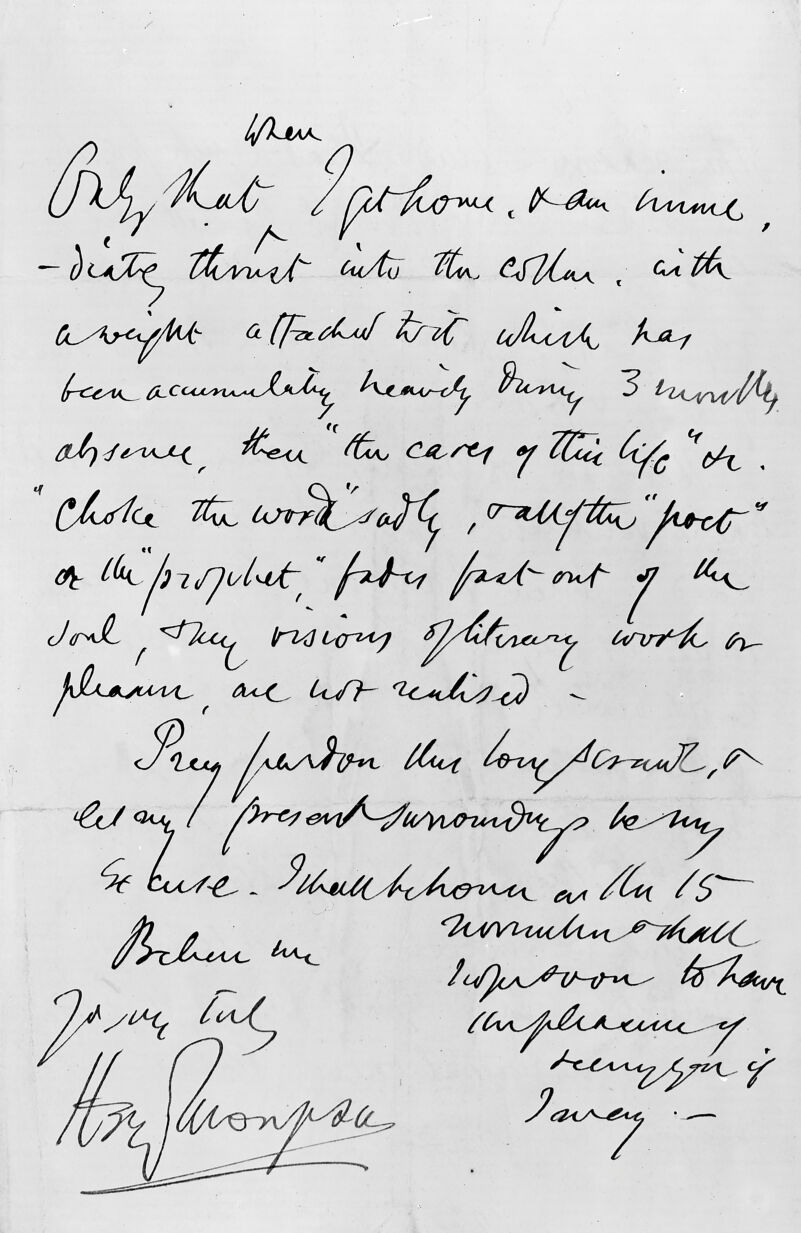 when
Only that ^ I get home, & am imme,
-diately thrust into the collar, with
a weight attached to it which has
been accumulating heavily during 3 months
absence, then "the cares of this life" &c.
"choke the word" sadly, & all of the "poet"
or the "prophet," fades fast out of the
soul, & my visions of literary work or
pleasure, are not realised -
Pray pardon this long scrawl, &
let my present surroundings be my
Excuse. I shall be home on the 15
November & shall
hope soon to have
the pleasure of
seeing you if
I may. -
Believe me
Yrs very truly
Hry Thompson